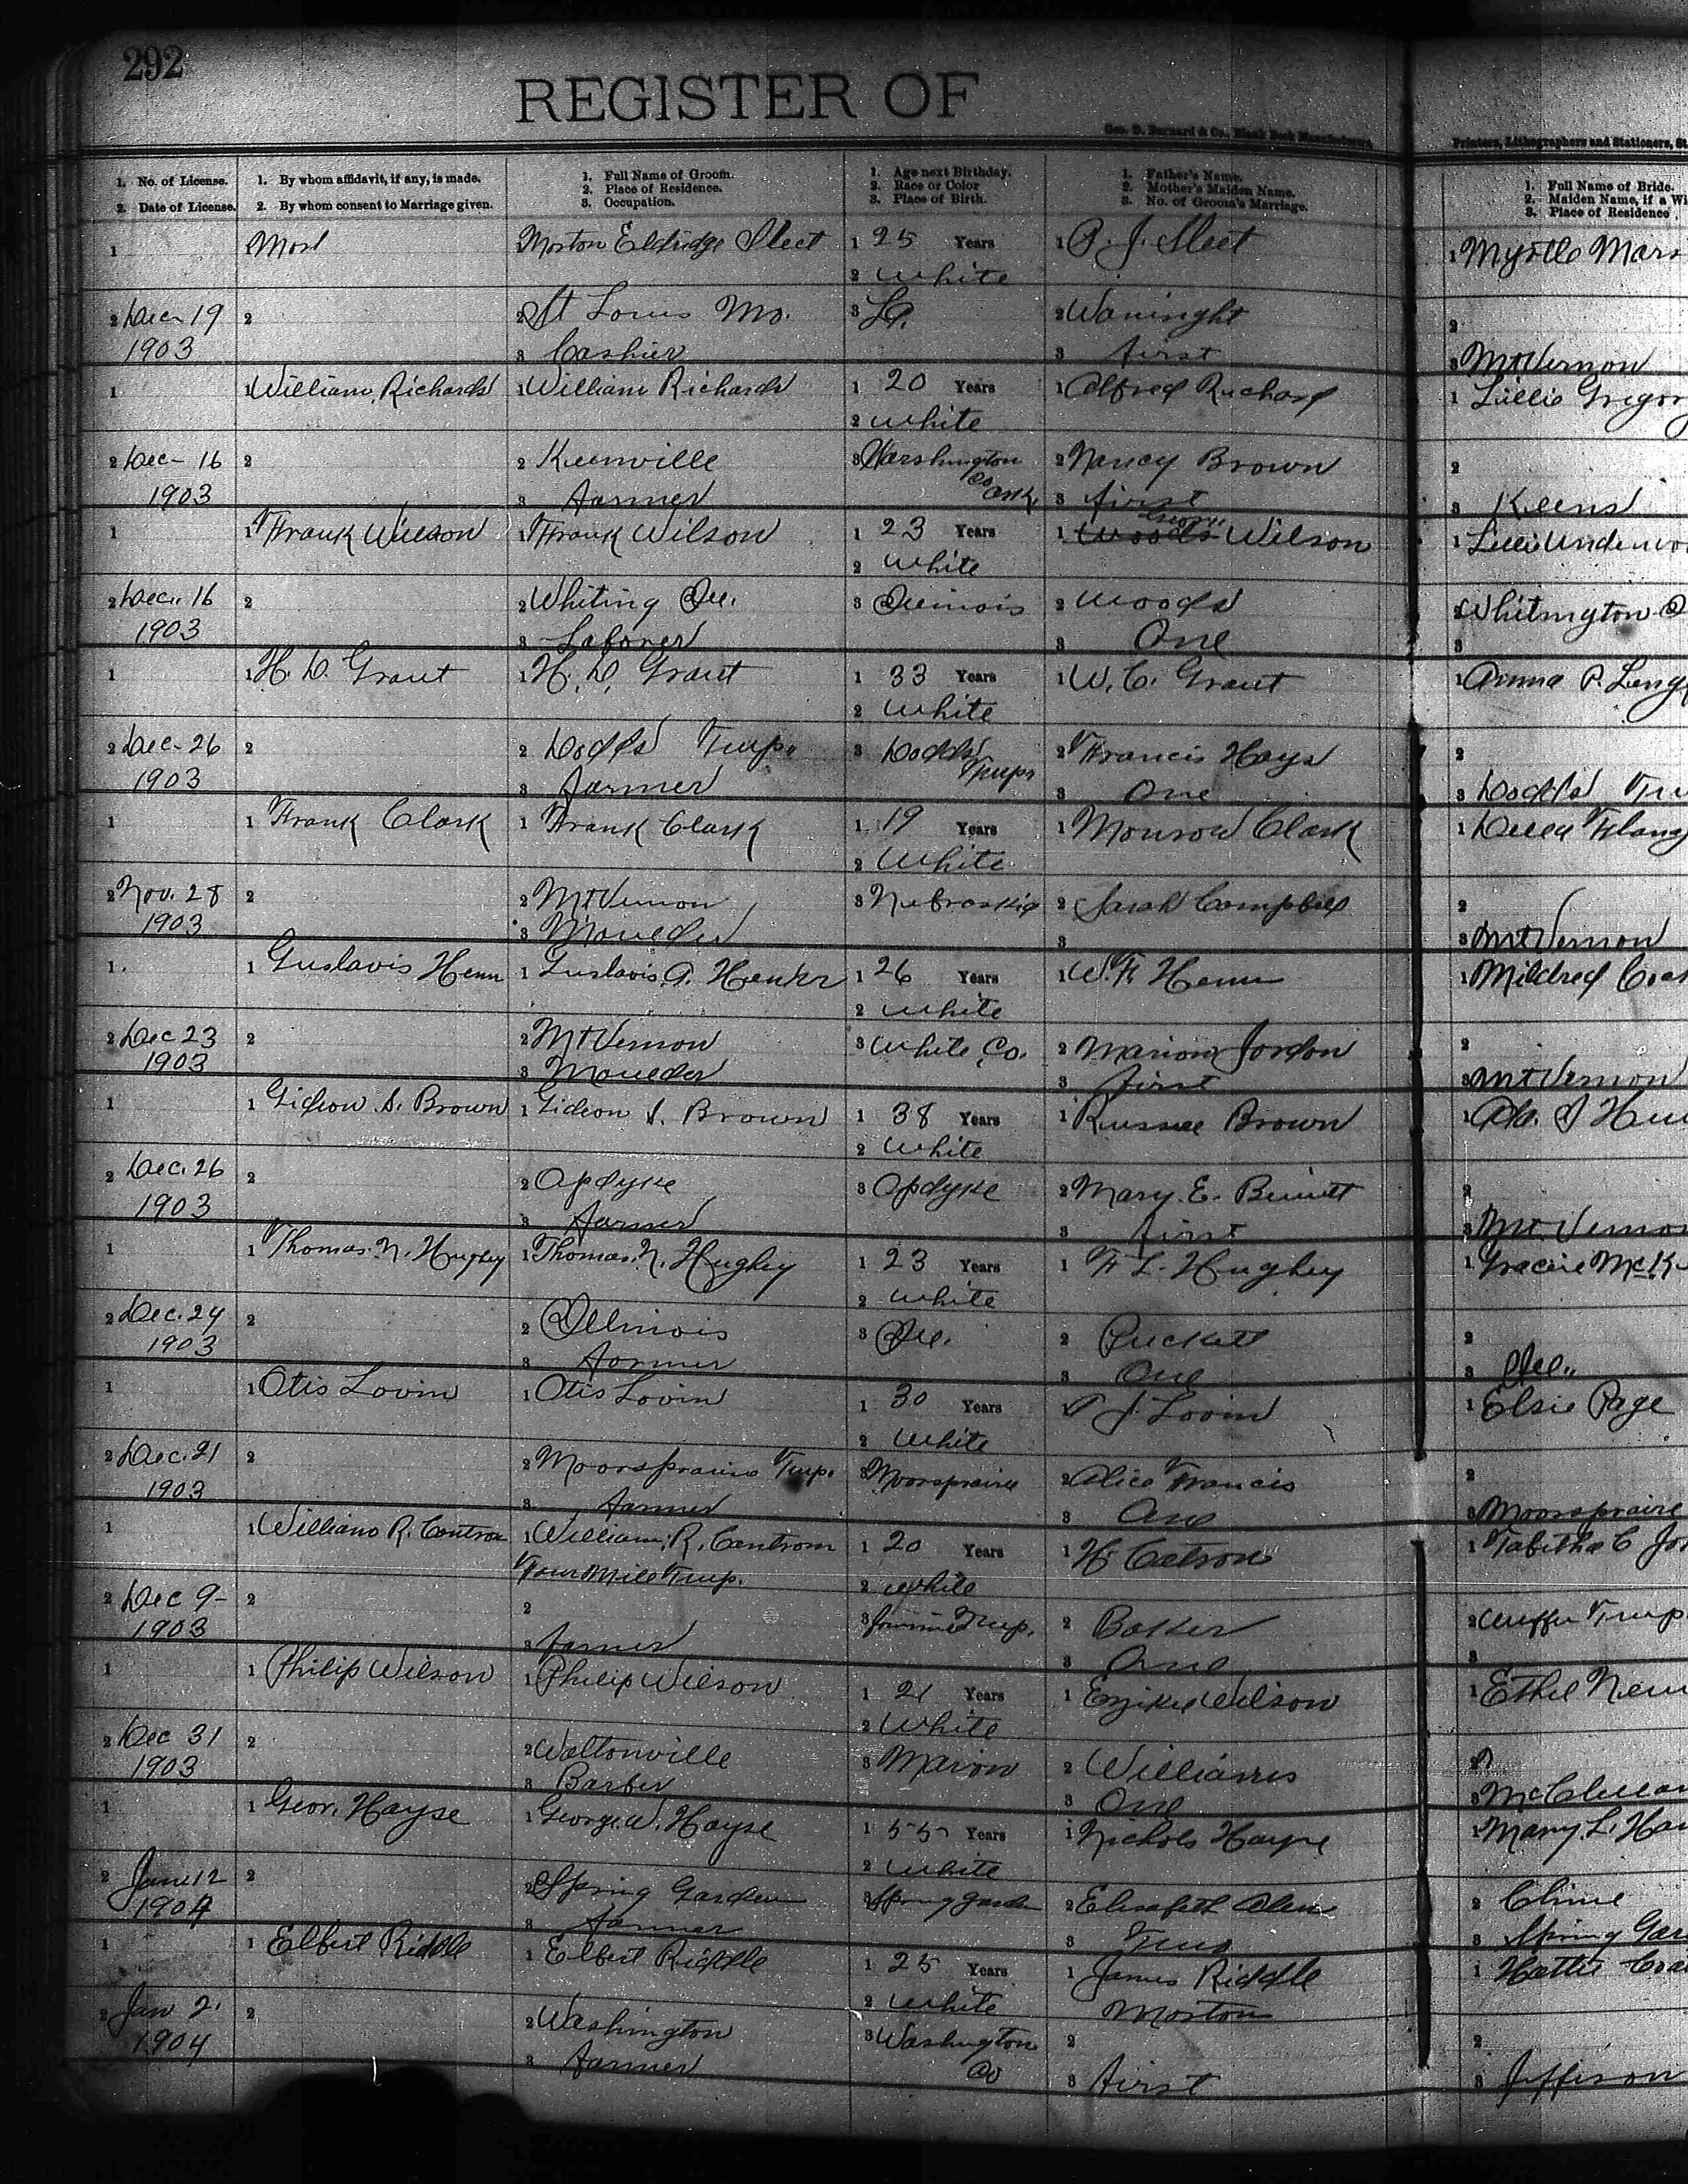 292
REGISTER OF
Geo. D. Barnard & Co., Blank Book Manufacturers,
Printers, Lithographers and Stationers, St
1. No. of License.
2. Date of License.
1. By whom affidavit, if any, is made.
2. By whom consent to Marriage given.
1. Full Name of Groom.
2. Place of Residence.
3. Occupation.
1. Age next Birthday.
2. Race or Color
3. Place of Birth.
1. Father's Name.
2. Mother's Maiden Name.
3. No. of Groom's Marriage.
1. Full Name of Bride.
2. Maiden Name, if a Wi
3. Place of Residence
1 Morton Eldridge Sleet 1 25 Years 1 P. J. Sleet 1 Myrtle Mars
2 White
2 Dec 19 2 2 St Louis Mo. 3 2 2
1903 3 Cashier 3 first 3 Mt Vernon
1 1 William Richards 1 William Richards 1 20 Years 1 Alfred Richard 1 Lillie Gregor
2 White
2 Dec- 16 2 2 Keenville 3 Washington 2 Nancy Brown 2
Co Ark.
1903 3 Farmer 3 first 3 Keens
1 1 Frank Wilson 1 Frank Wilson 1 23 Years 1 Woods Wilson 1
2 White
2 Dec. 16 2 2 Whiting Ill. 3 Illinois 2 Woods 2 Whitington
1903 3 Laborer 3 One 3
1 1 H. D. Grant 1 H. D. Grant 1 33 Years 1 W. C. Grant 1 Anna P.
2 White
2 Dec- 26 2 2 Dodds Twp. 3 Dodds Twp 2 Francis Hays 2
1903 3 Farmer 3 One 3 Dodds
1 1 Frank Clark 1 Frank Clark 1 19 Years 1 Monrow Clark 1
2 White
2 Nov. 28 2 2 Mt Vernon 3 Nebraska 2 Sarah Campbell 2
1903 3 Moulder 3 3 Mt Vernon
1 1 Gustavis Henn 1 Gustavis A. 1 26 Years 1 W. F. Henn 1 Mildred
2 White
2 Dec 23 2 2 Mt Vernon 3 White Co. 2 Marion Jordon 2
1903 3 Moulder 3 first 3 Mt Vernon
1 1 Gideon S. Brown 1 Gideon S. Brown 1 38 Years 1 Russell Brown 1
2 White
2 Dec. 26 2 2 Opdyke 3 Opdyke 2 Mary E. 2
1903 3 Farmer 3 first 3 Mt. Vernon
1 1 Thomas N. Hughey 1 Thomas N. Hughey 1 23 Years 1 F L. Hughey 1 Gracie McK
2 White
2 Dec. 24 2 2 Illinois 3 Ill. 2 Puckett 2
1903 3 Farmer 3 One 3 Ill.
1 1 Otis Lovin 1 Otis Lovin 1 30 Years J. Lovin 1 Elsie Page
2 White
2 Dec. 21 2 2 Moorsprairie Twp. 3 Moorsprairie 2 Alice Francis 2
1903 3 Farmer 3 One 3 Moorsprairie
1 1 William R. 1 William R. Cantrom 1 20 Years 1 H. Catron 1 Tabitha C Jo
Four Mile Twp. 2 White
2 Dec 9- 2 2 3 2 Baker 2 Twp
1903 3 Farmer 3 One 3
1 1 Philip Wilson 1 Philip Wilson 1 21 Years 1 Wilson 1 Ethel New
2 White
2 Dec 31 2 2 Waltonville 3 Marion 2 Williams 2
1903 3 Barber 3 One 3
1 1 Geor. Hayse 1 George W. Hayse 1 55 Years 1 Nichols Hayse 1 Mary L. Ha
2 White
2 Jan 12 2 2 Spring Garden 3 Spring Garden 2 Elisabeth 2
1904 3 Farmer 3 Two 3 Spring Gar
1 1 Elbert Riddle 1 Elbert Riddle 1 25 Years 1 James Riddle 1 Hattie
2 White Morton
2 Jan 2. 2 2 Washington 3 Washington Co 2 2
1904 3 Farmer 3 first 3 Jefferson